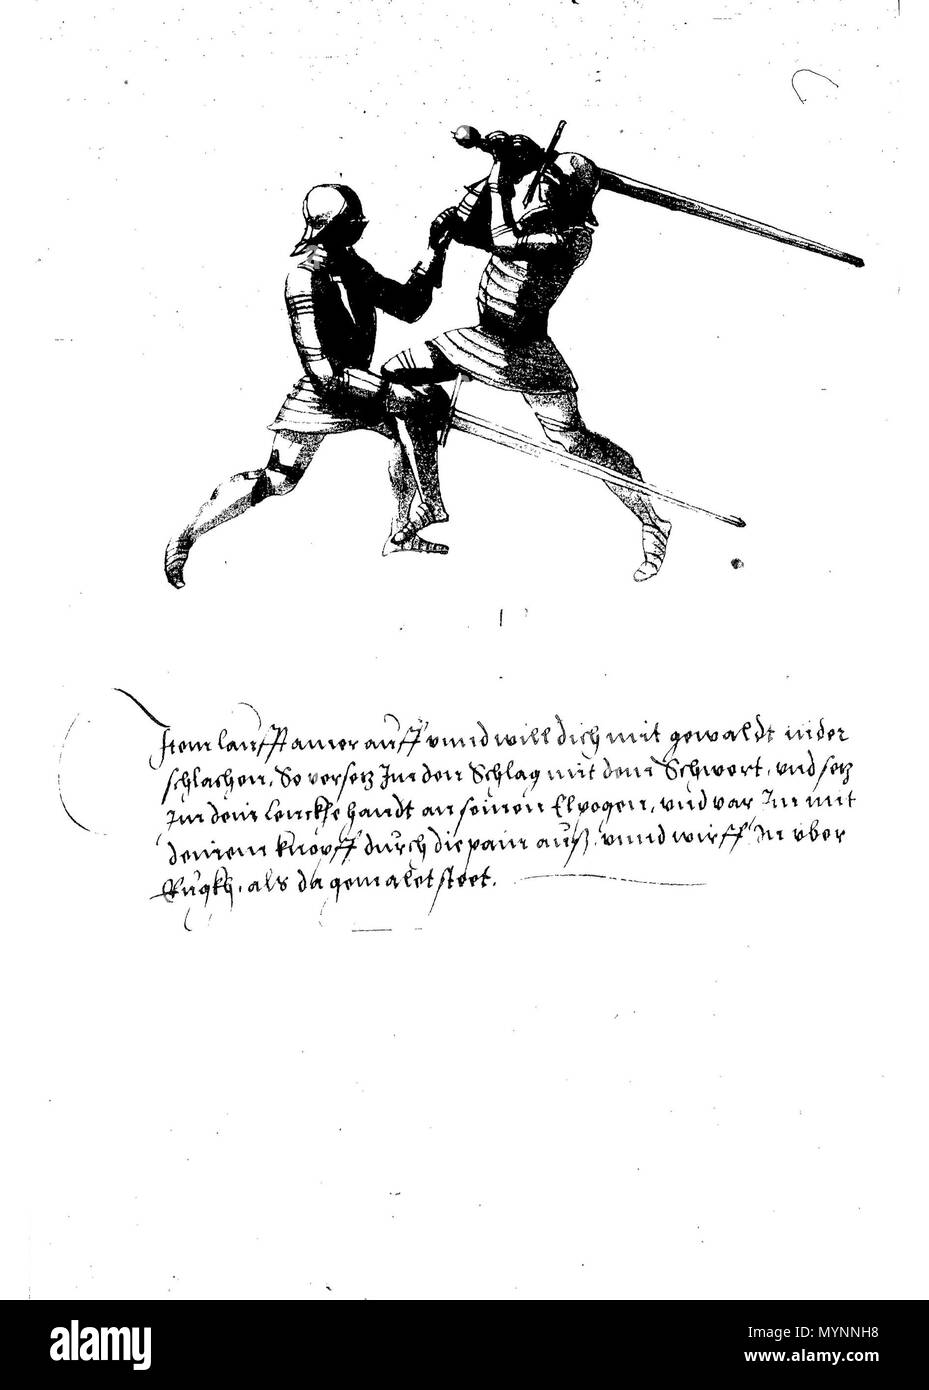 Item laufft ainer auff unnd will dich mit gewaldt nider
schlachen, So versetz Im den Schlag mit dem Schwert, und setz
Im dein lenckhe handt an seinen Elpogen, und var Im mit
deinem knopff durch die pain auß, unnd wirff In über
Rugkh, als da gemalet steet.
alamy
alamy
Image ID: MYNNH8
www.alamy.com